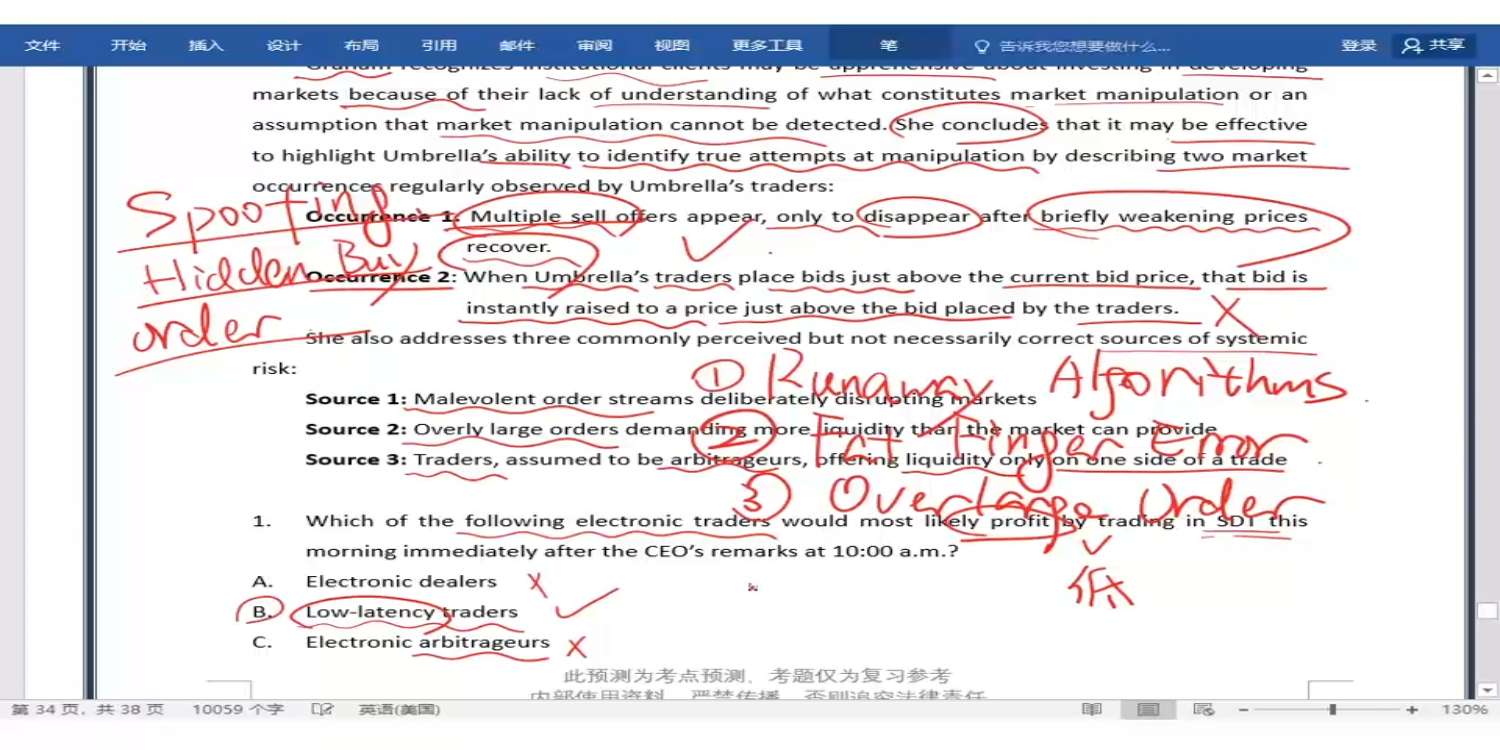 文件 开始 插入 设计 布局 引用 邮件 审阅 视图 更多工具 笔 告诉我您想要做什么... 登录 共享
Graham recognizes institutional clients may be apprehensive about investing in developing
markets because of their lack of understanding of what constitutes market manipulation or an
assumption that market manipulation cannot be detected. She concludes that it may be effective
to highlight Umbrella's ability to identify true attempts at manipulation by describing two market
occurrences regularly observed by Umbrella's traders:
Spoofing
Occurrence 1: Multiple sell offers appear, only to disappear after briefly weakening prices
recover.
Hidden Buy
Occurrence 2: When Umbrella's traders place bids just above the current bid price, that bid is
instantly raised to a price just above the bid placed by the traders.
order
She also addresses three commonly perceived but not necessarily correct sources of systemic
risk:
① Runaway Algorithms
Source 1: Malevolent order streams deliberately disrupting markets
Source 2: Overly large orders demanding more liquidity than the market can provide
② Fat Finger Error
Source 3: Traders, assumed to be arbitrageurs, offering liquidity only on one side of a trade
③ Overlarge Order
1. Which of the following electronic traders would most likely profit by trading in SDT this
morning immediately after the CEO's remarks at 10:00 a.m.?
A. Electronic dealers
低
B. Low-latency traders
C. Electronic arbitrageurs
此预测为考点预测，考题仅为复习参考
内部使用资料，严禁传播，否则追究法律责任
第 34 页，共 38 页 10059 个字 英语(美国) 130%